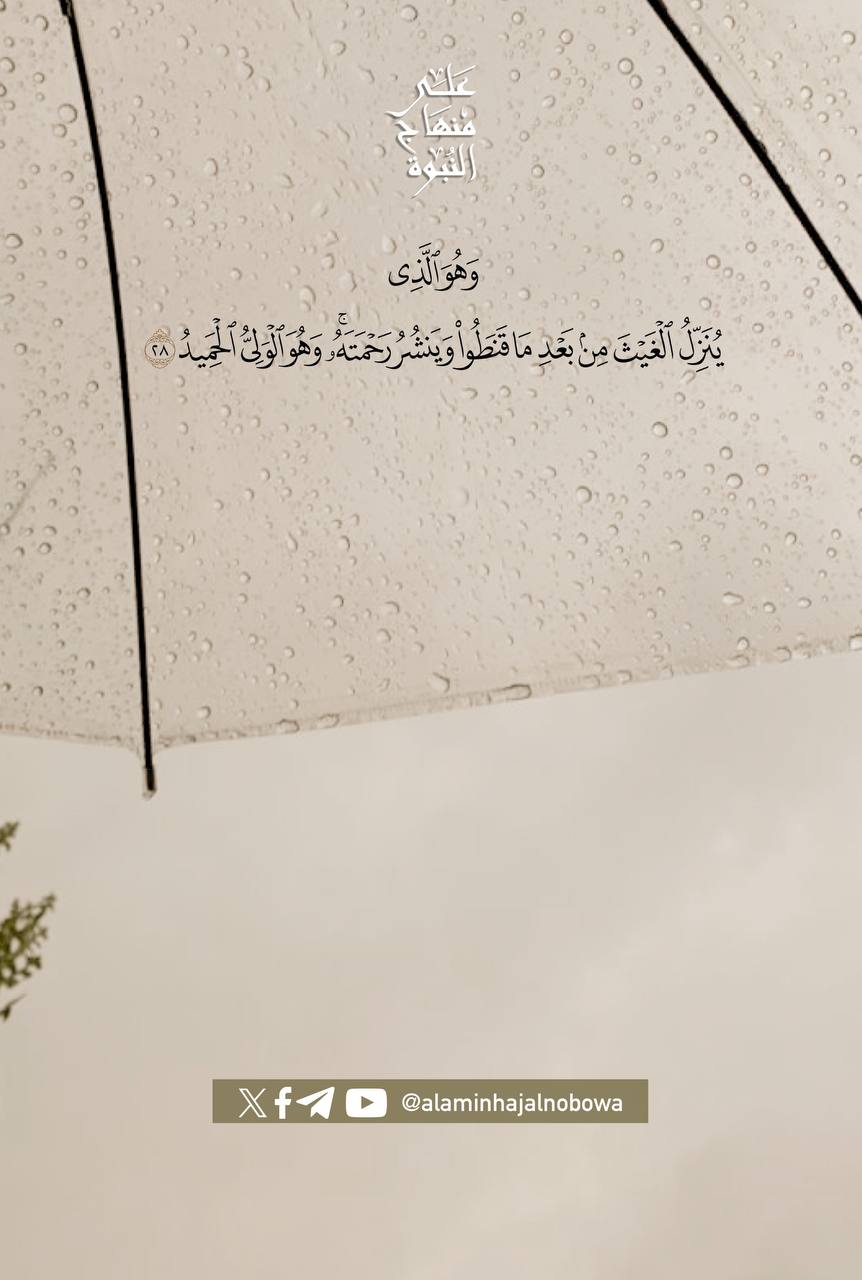 عَلَى
مِنهَاج
النُّبُوة
وَهُوَ ٱلَّذِى
يُنَزِّلُ ٱلْغَيْثَ مِنۢ بَعْدِ مَا قَنَطُوا۟ وَيَنشُرُ رَحْمَتَهُۥ ۚ وَهُوَ ٱلْوَلِىُّ ٱلْحَمِيدُ ٢٨
@alaminhajalnobowa